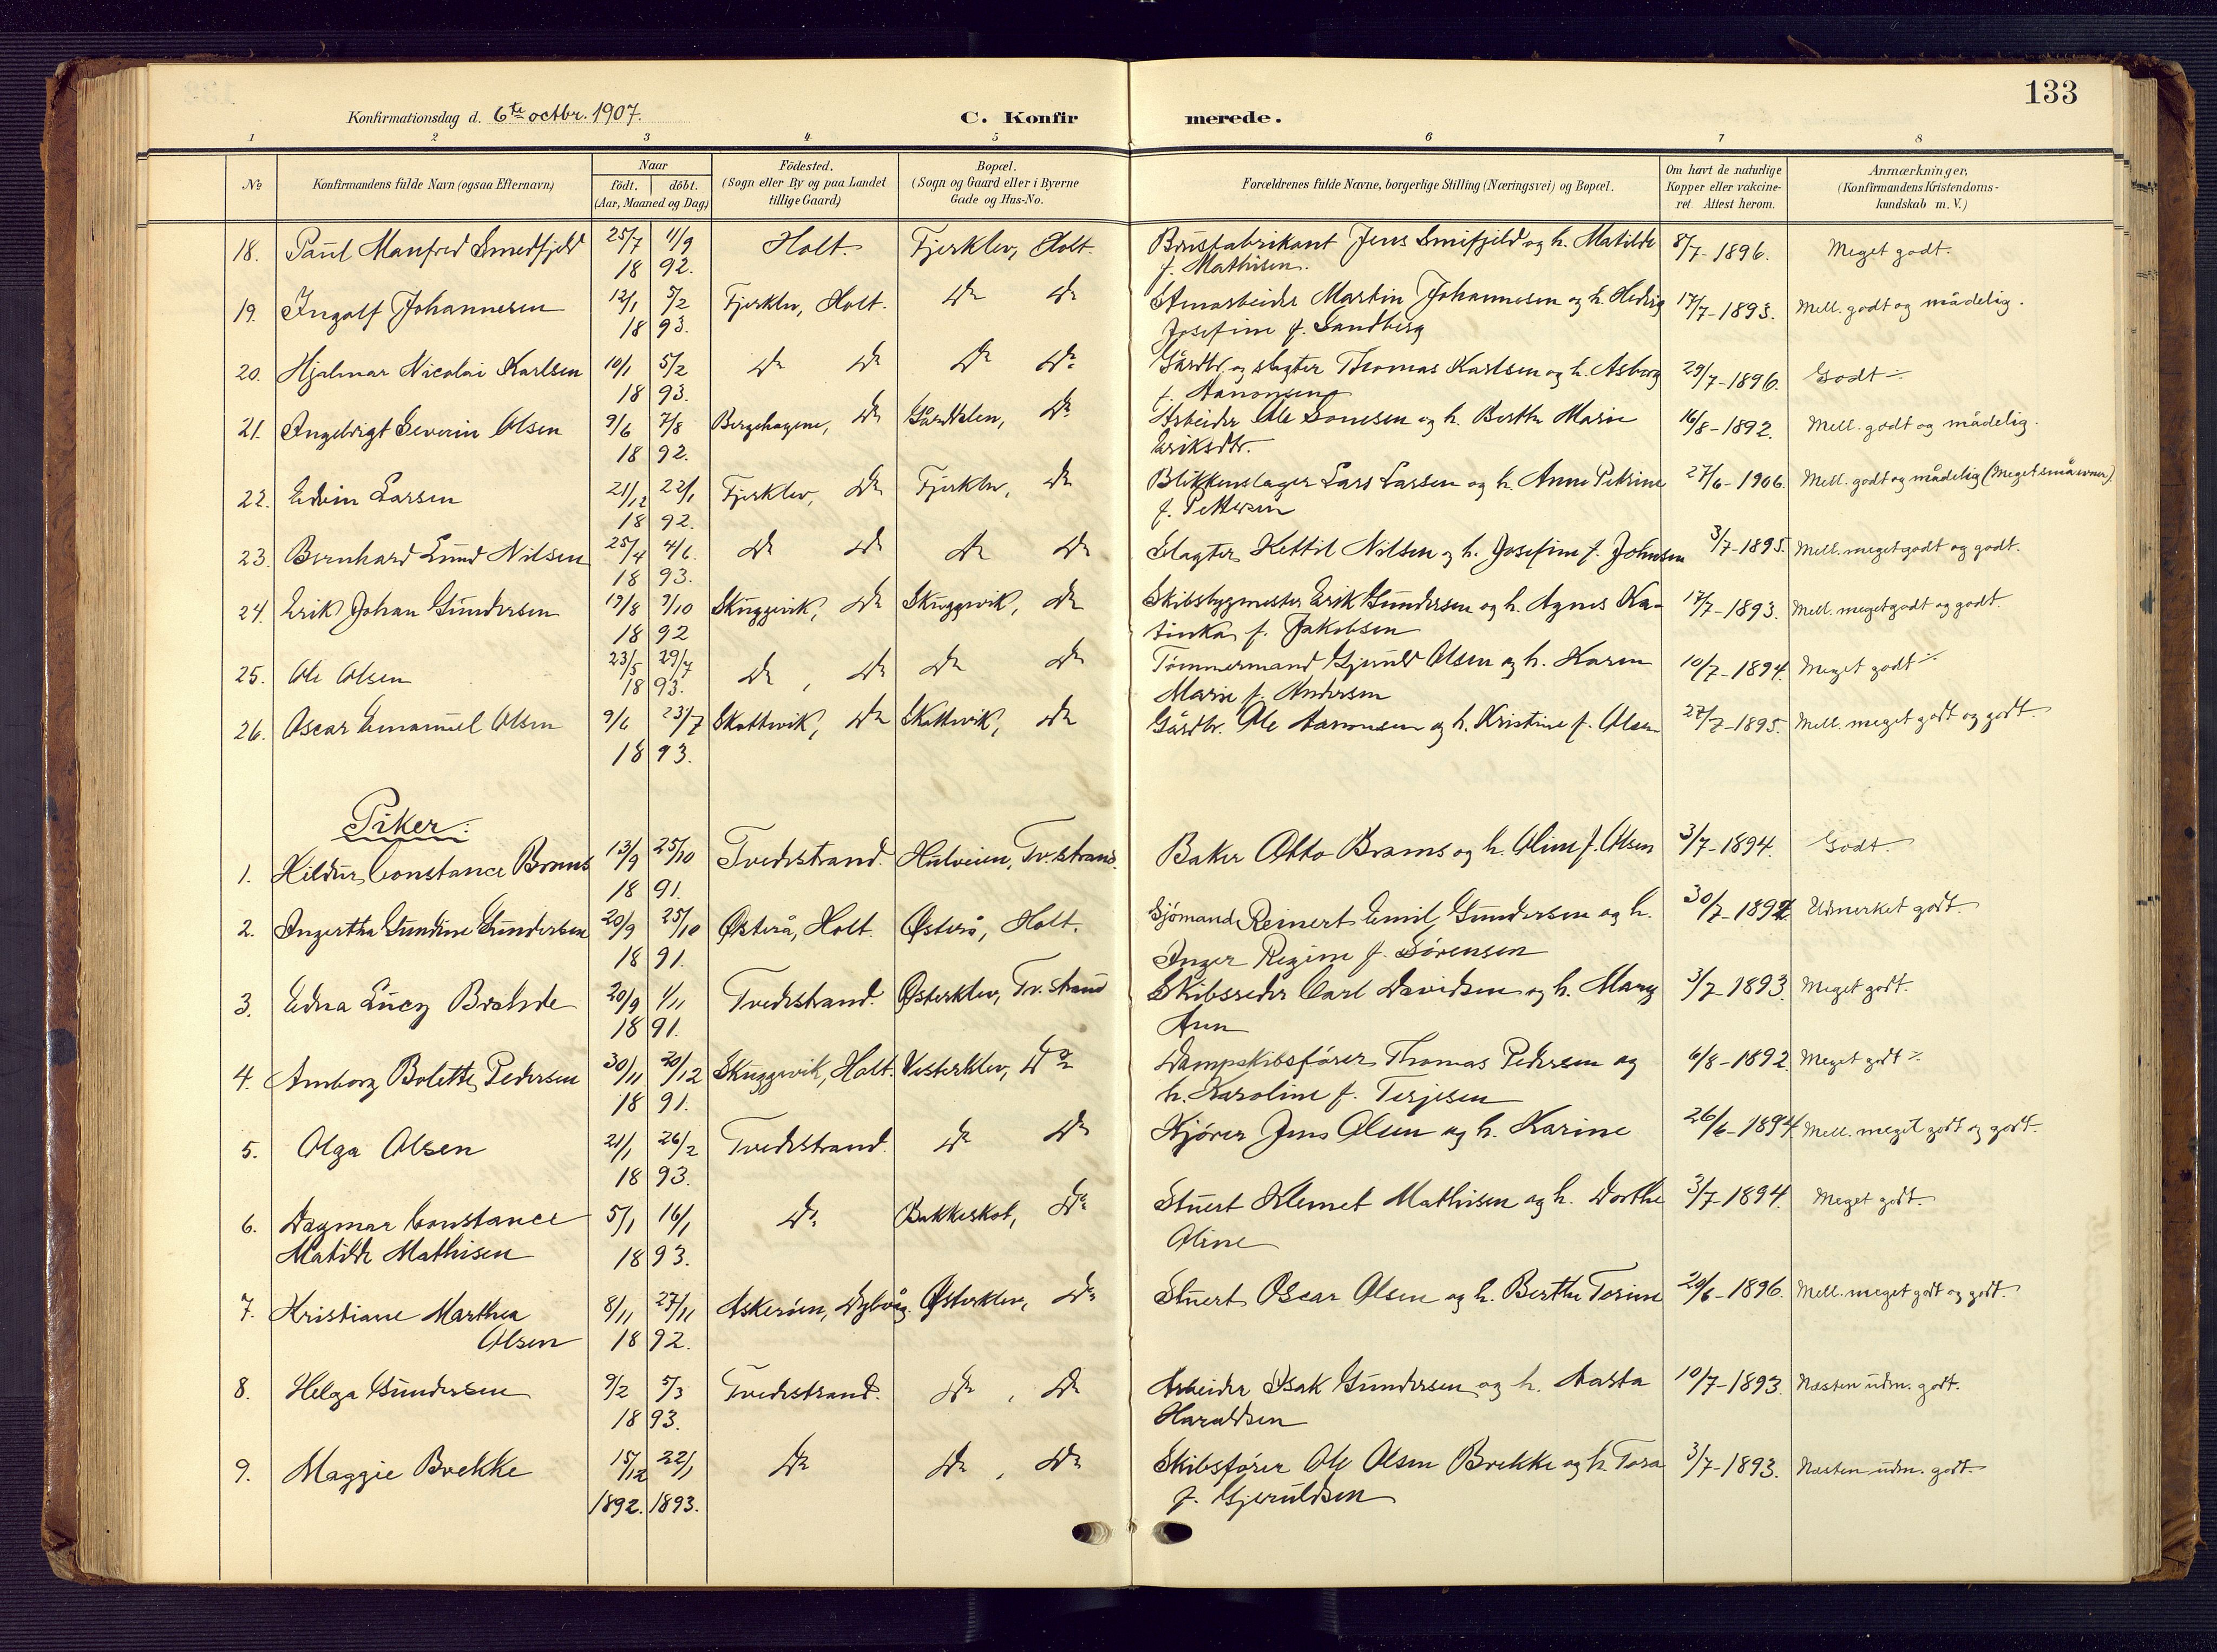 133
Konfirmationsdag d. 6te octbr. 1907.
C. Konfirmerede.
1 2 3 4 5 6 7 8
No
Konfirmandens fulde Navn (ogsaa Efternavn)
Naar
födt. döbt.
(Aar, Maaned og Dag)
Födested.
(Sogn eller By og paa Landet
tillige Gaard)
Bopæl.
(Sogn og Gaard eller i Byerne
Gade og Hus-No.
Forældrenes fulde Navne, borgerlige Stilling (Næringsvei) og Bopæl.
Om havt de naturlige
Kopper eller vakcine-
ret. Attest herom.
Anmærkninger,
(Konfirmandens Kristendoms-
kundskab m. V.)
18. Paul Manfred Smedfjeld 25/7 11/9 Holt. Fjerklev, Holt. Brusfabrikant Jens Smifjeld og h. Matilde 8/7-1896. Meget godt.
18 92. f. Mathisen.
19. Ingolf Johannesen 12/1 5/2 Fjerklev, Holt. Do Do Stenarbeider Martin Johannesen og h. Hedvig 17/7-1893. Mell. godt og mådelig.
18 93. Josefine f. Sandberg
20. Hjalmar Nicolai Karlsen 10/1 5/2 Do Do Do Do Gårdbr. og slagter Thomas Karlsen og h. Asborg 29/7-1896. Godt
18 93. f. Aanonsen
21. Ingebrigt Severin Olsen 9/6 7/8 Bergehagene, Do Do Arbeider Ole Gonesen og h. Berthe Marie 16/8-1892. Mell. godt og mådelig.
18 92. Eriksdtr.
22. Edvin Larsen 21/12 22/1 Fjerklev, Do Fjerklev, Do Blikkenslager Lars Larsen og h. Anne Petrine 27/6-1906. Mell. godt og mådelig (Meget små evner)
18 92. f. Pettersen
23. Bernhard Lund Nilsen 25/4 4/6 Do Do Do Do Slagter Kettil Nilsen og h. Josefine f. Johnsen 3/7-1895. Mell. meget godt og godt.
18 93.
24. Erik Johan Gundersen 19/8 9/10 Skuggevik, Do Skuggevik, Do Skibsbygmester Erik Gundersen og h. Agnes Ka- 17/7-1893. Mell. meget godt og godt.
18 92 tinka f. Jakobsen
25. Ole Olsen 23/5 29/7 Do, Do Do Do Tømmermand Gjeruld Olsen og h. Karen 10/7-1894. Meget godt
18 93. Marie f. Andersen
26. Oscar Emanuel Olsen 9/6 23/7 Skottevik, Do Skottevik, Do Gårdbr. Ole Aanonsen og h. Kristine f. Olsen 27/7-1895. Mell. meget godt og godt.
18 93.
Piker:
1. Hildur Constance Brams 13/9 25/10 Tvedestrand. Hulveien, Tv.strand. Baker Otto Brams og h. Oline f. Olsen 3/7-1894. Godt
18 91.
2. Ingertha Gundine Gundersen 20/9 25/10 Østerå, Holt. Østerå, Holt. Sjømand Reinert Emil Gundersen og h. 30/7-1892. Udmerket godt.
18 91. Inger Regine f. Sørensen
3. Edna Lucy 20/9 1/11 Tvedestrand. Østerklev, Tv. strand Skibsreder Carl Davidsen og h. Mary 3/7-1893. Meget godt.
18 91. Ann
4. Amborg Bolette Pedersen 30/11 20/12 Skuggevik, Holt. Vesterklev, Do Dampskibsfører Thomas Pedersen og 6/8-1892. Meget godt
18 91. h. Karoline f. Terjesen
5. Olga Olsen 21/1 26/2 Tvedestrand. Do Do Kjører Jens Olsen og h. Karine 26/6-1894 Mell. meget godt og godt.
18 93.
6. Dagmar Constance 5/1 16/1 Do Bakkeskot, Do Stuert Klemet Mathisen og h. Dorthe 3/7-1894. Meget godt.
Matilde Mathisen 18 93. Oline
7. Kristiane Marthea 8/11 27/11 Askerøen, Dybvåg. Østerklev, Do Stuert Oscar Olsen og h. Berthe Torine 29/6-1896. Mell. meget godt og godt.
Olsen 18 92.
8. Helga Gundersen 9/2 5/3 Tvedestrand. Do, Do Arbeider Isak Gundersen og h. Aasta 10/7-1893. Næsten udm. godt.
18 93. Haraldsen
9. Maggie Brekke 15/12 22/1 Do Do, Do Skibsfører Ole Olsen Brekke og h. Tora 3/7-1893. Næsten udm. godt.
1892. 1893. f. Gjeruldsen